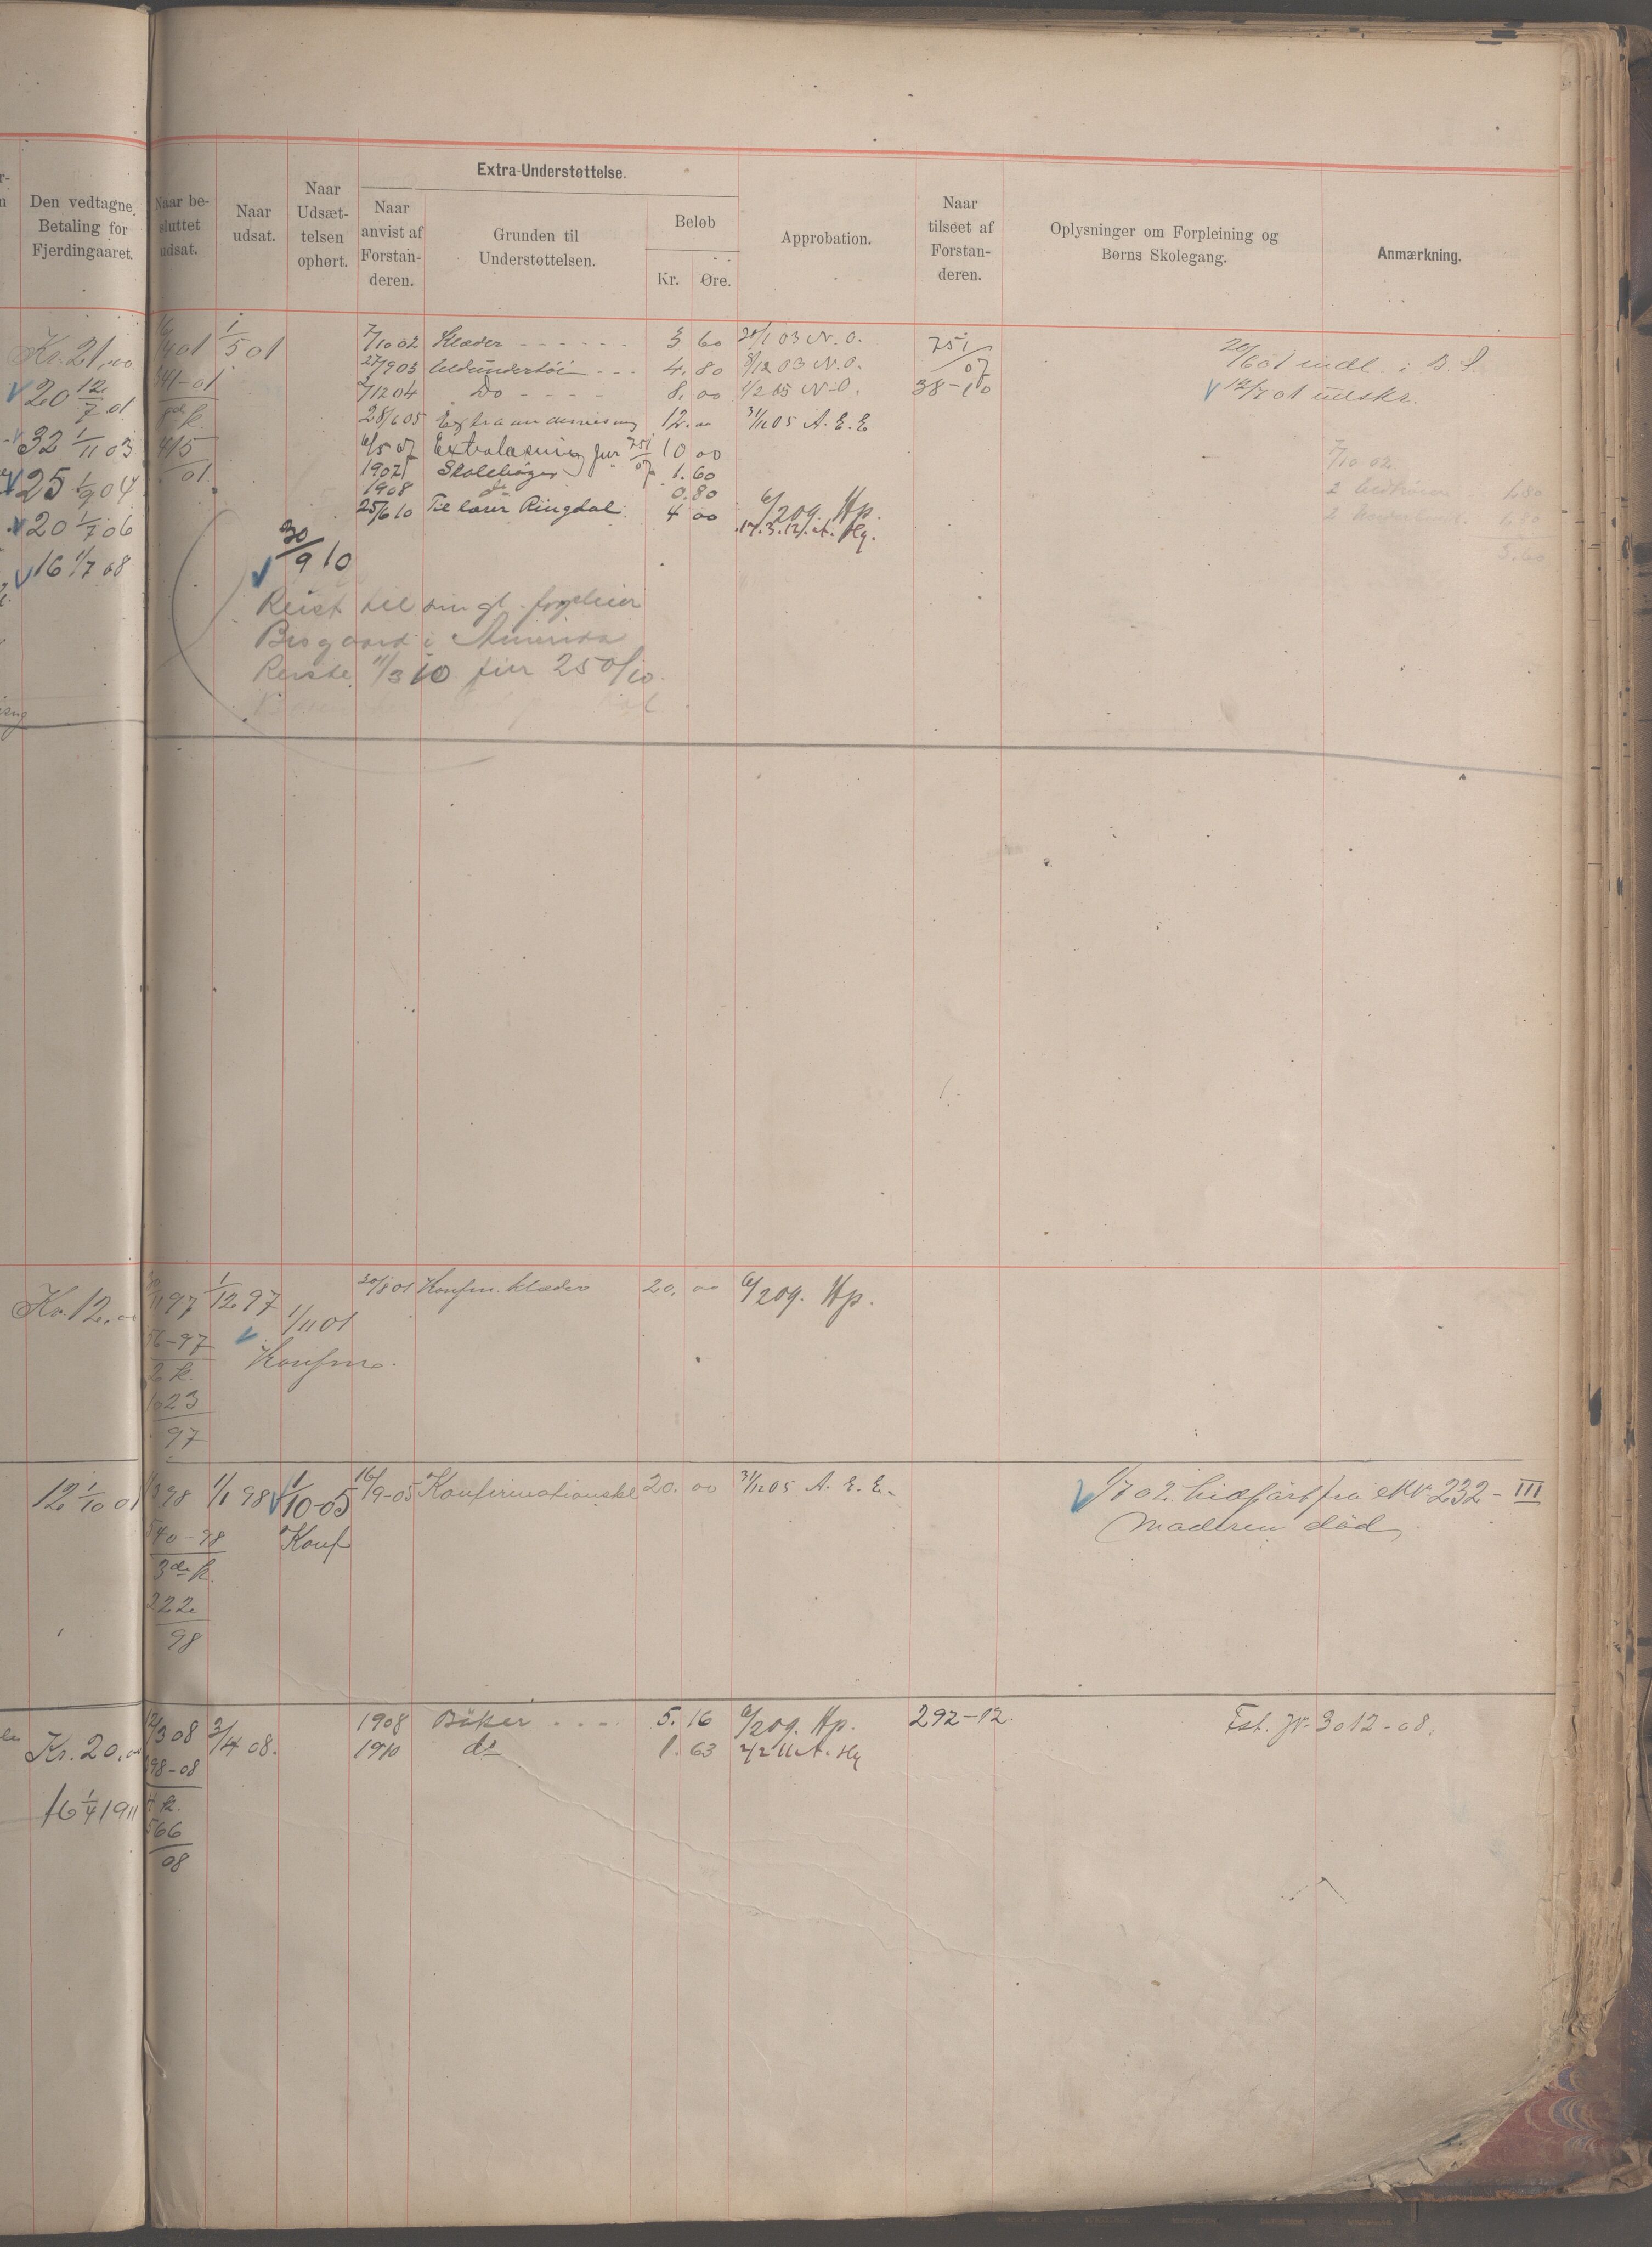 Extra-Understøttelse.
Den vedtagne Betaling for Fjerdingaaret.
Naar besluttet udsat.
Naar udsat.
Naar Udsættelsen ophørt.
Naar anvist af Forstanderen.
Grunden til Understøttelsen.
Beløb
Kr. Øre.
Approbation.
Naar tilseet af Forstanderen.
Oplysninger om Forpleining og Børns Skolegang.
Anmærkning.
Kr. 21,00 1/5 01 7/10 02 Klæder - - - - - - 3 60 20/1 03 N.O. 751/07 20/6 01 indl. i B.S.
20 12/7 01 341-01 27/9 03 uldundertöi - - - 4,80 8/12 03 N.O. 38-10 12/7 01 udskr.
7/12 04 Do - - - - 8,00 1/2 05 N.O.
32 1/11 03 415/01 28/6 05 Extraanvisning 12.00 31/12 05 A.E.E
6/5 07 Extralæsning jnr 751/07 10 00
25 1/9 04 1907 Skolebøger 1.60
1908 do 0.80 6/2 09. Hp.
20 1/7 06 25/6 10 Til lærer Ringdal 4 00 14.3.12. A. Hg.
16 1/7 08 30/9 10
7/10 02
1,80
3.60
Reist til sin gl. forpleier
Bisgaard i Amerika
Reiste 11/3 10 jnr 250/10.
Kr. 12,00 97 1/12 97 1/11 01 30/8 01 Konfm. klæder 20,00 6/2 09. Hp.
56-97
2 k.
Konfm.
1023
97
12 1/10 01 98 1/1 98 1/10-05 16/9-05 Konfirmationskl 20.00 31/12 05 A.E.E. 1/7 02 hidført fra No 232-III
540-98 Konf Moderen död
3die k.
222
98
Kr. 20,00 12/3 08 3/4 08. 1908 Böker - - - - 5.16 6/2 09. Hp. 292-12. Fst. Jr. 3012-08.
98-08 1910 do 1.63 2/2 11 A. Hg
16 1/4 1911 k.
566
08